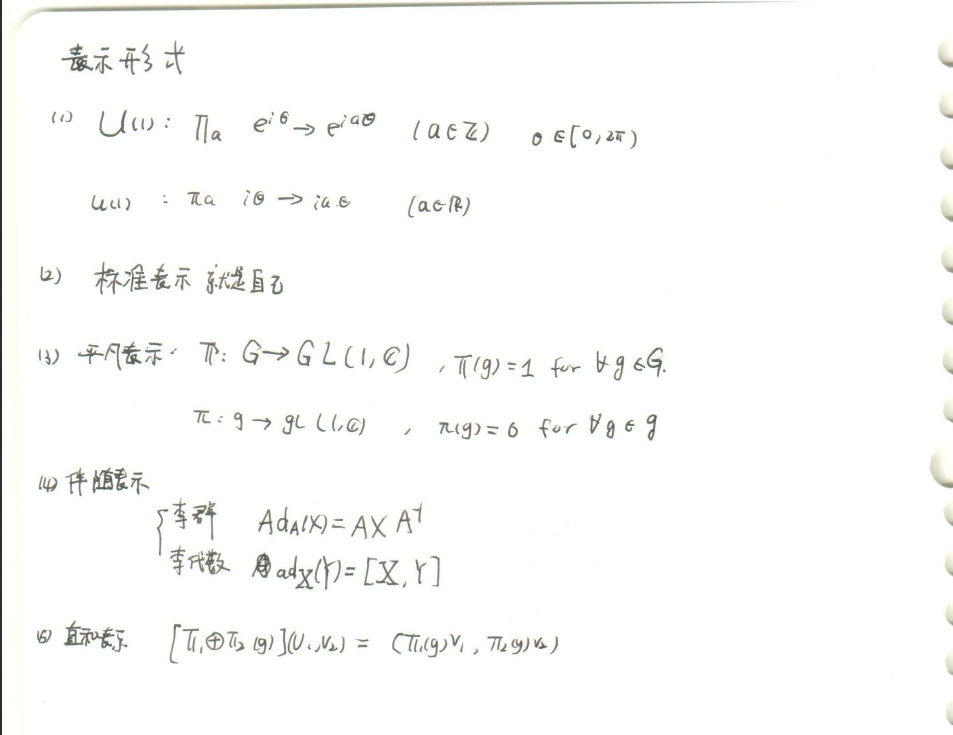 表示形式
(1) U(1): Πa e^{iθ} → e^{iaθ} (a∈ℤ) θ∈[0,2π)
u(1) : πa iθ → iaθ (a∈ℝ)
(2) 标准表示 就是自己
(3) 平凡表示: Π: G→GL(1,ℂ) , Π(g)=1 for ∀g∈G.
π: g → gl(1,ℂ) , π(g)=0 for ∀g∈g
(4) 伴随表示
李群 Ad_A(X)=AXA^{-1}
李代数 ad_X(Y)=[X,Y]
(5) 直和表示 [Π₁⊕Π₂(g)](v₁,v₂) = (Π₁(g)v₁, Π₂(g)v₂)